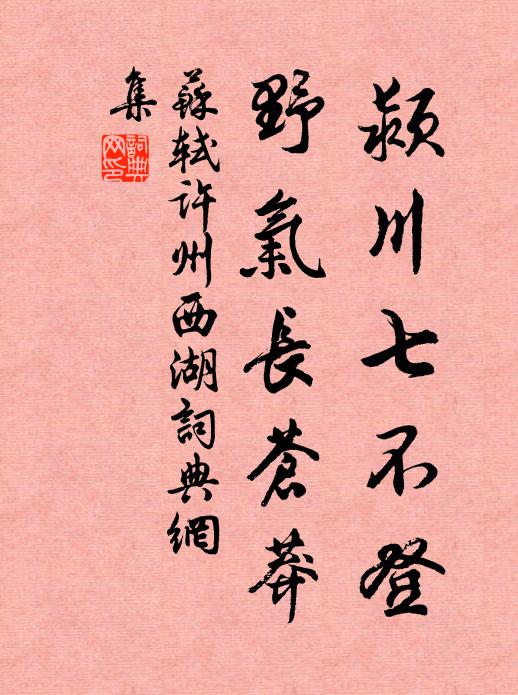 潁川七不登
野氣長蒼莽
蘇軾許州西湖詞典網
集
詞典
网印